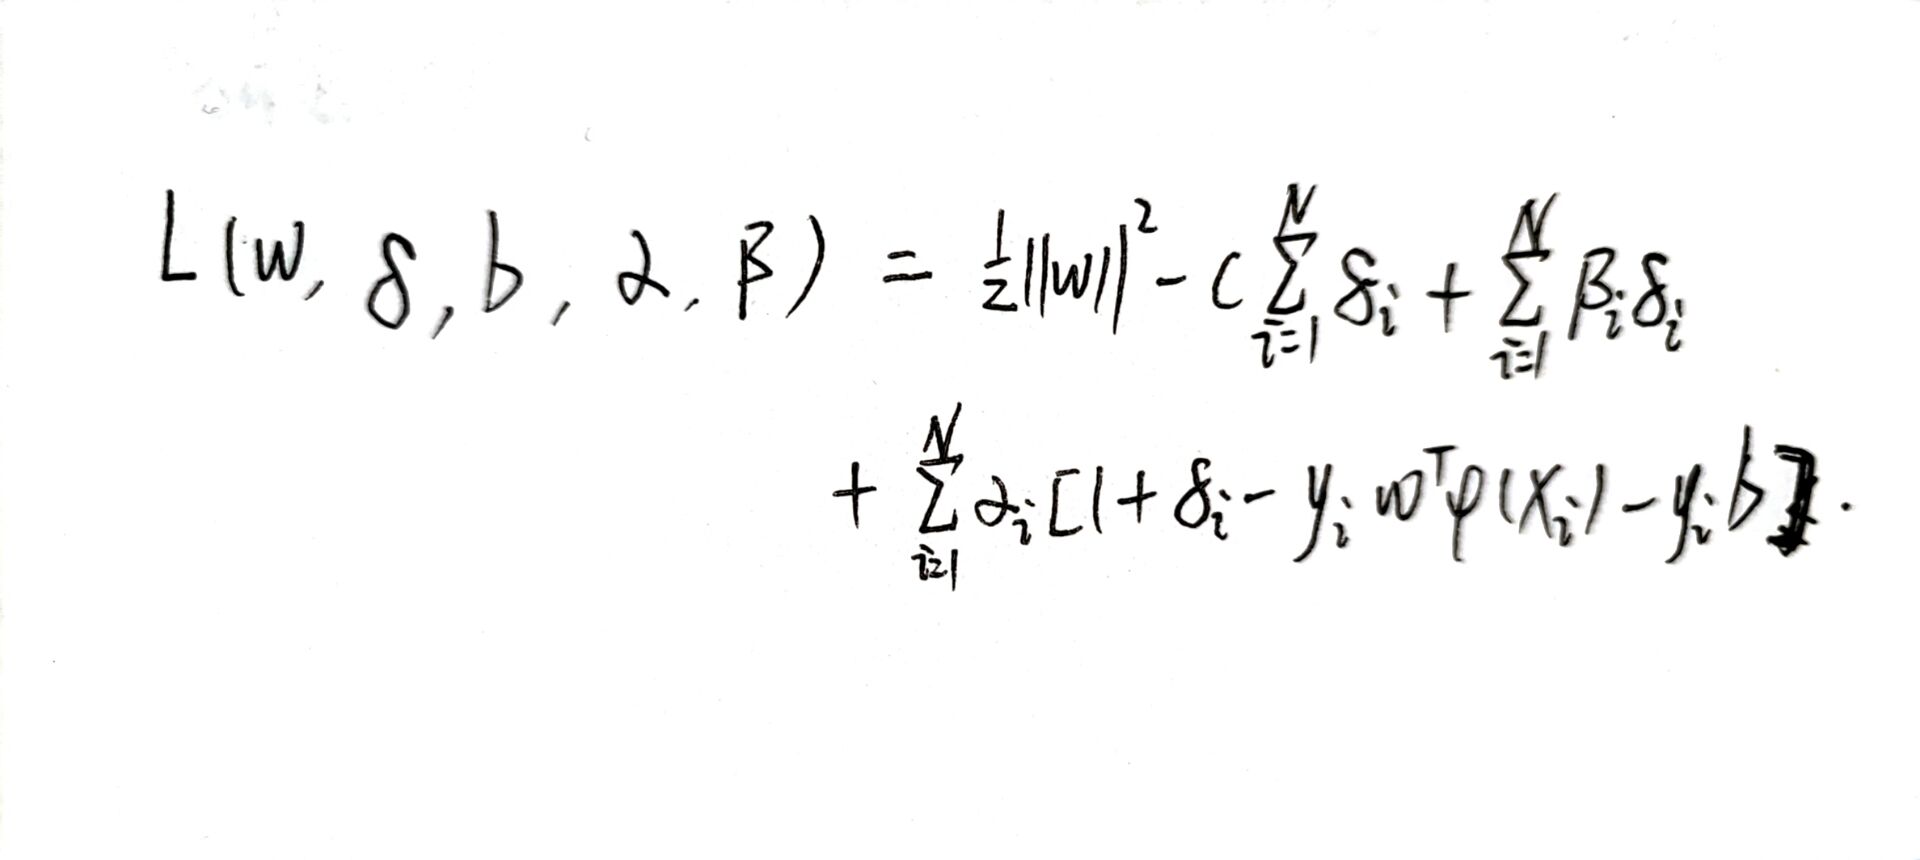 L(w, δ, b, α, β) = ½||w||² - C∑_{i=1}^{N} δ_i + ∑_{i=1}^{N} β_i δ_i
+ ∑_{i=1}^{N} α_i [1 + δ_i - y_i w^T φ(x_i) - y_i b].